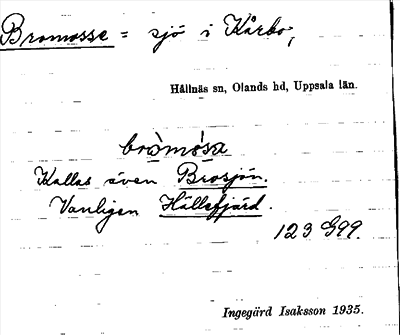 Bromosse = sjö i Kårbo,
Hållnäs sn, Olands hd, Uppsala län.
bròmósa
Kallas även Brosjön.
Vanligen Hällefjärd.
123 G99.
Ingegärd Isaksson 1935.